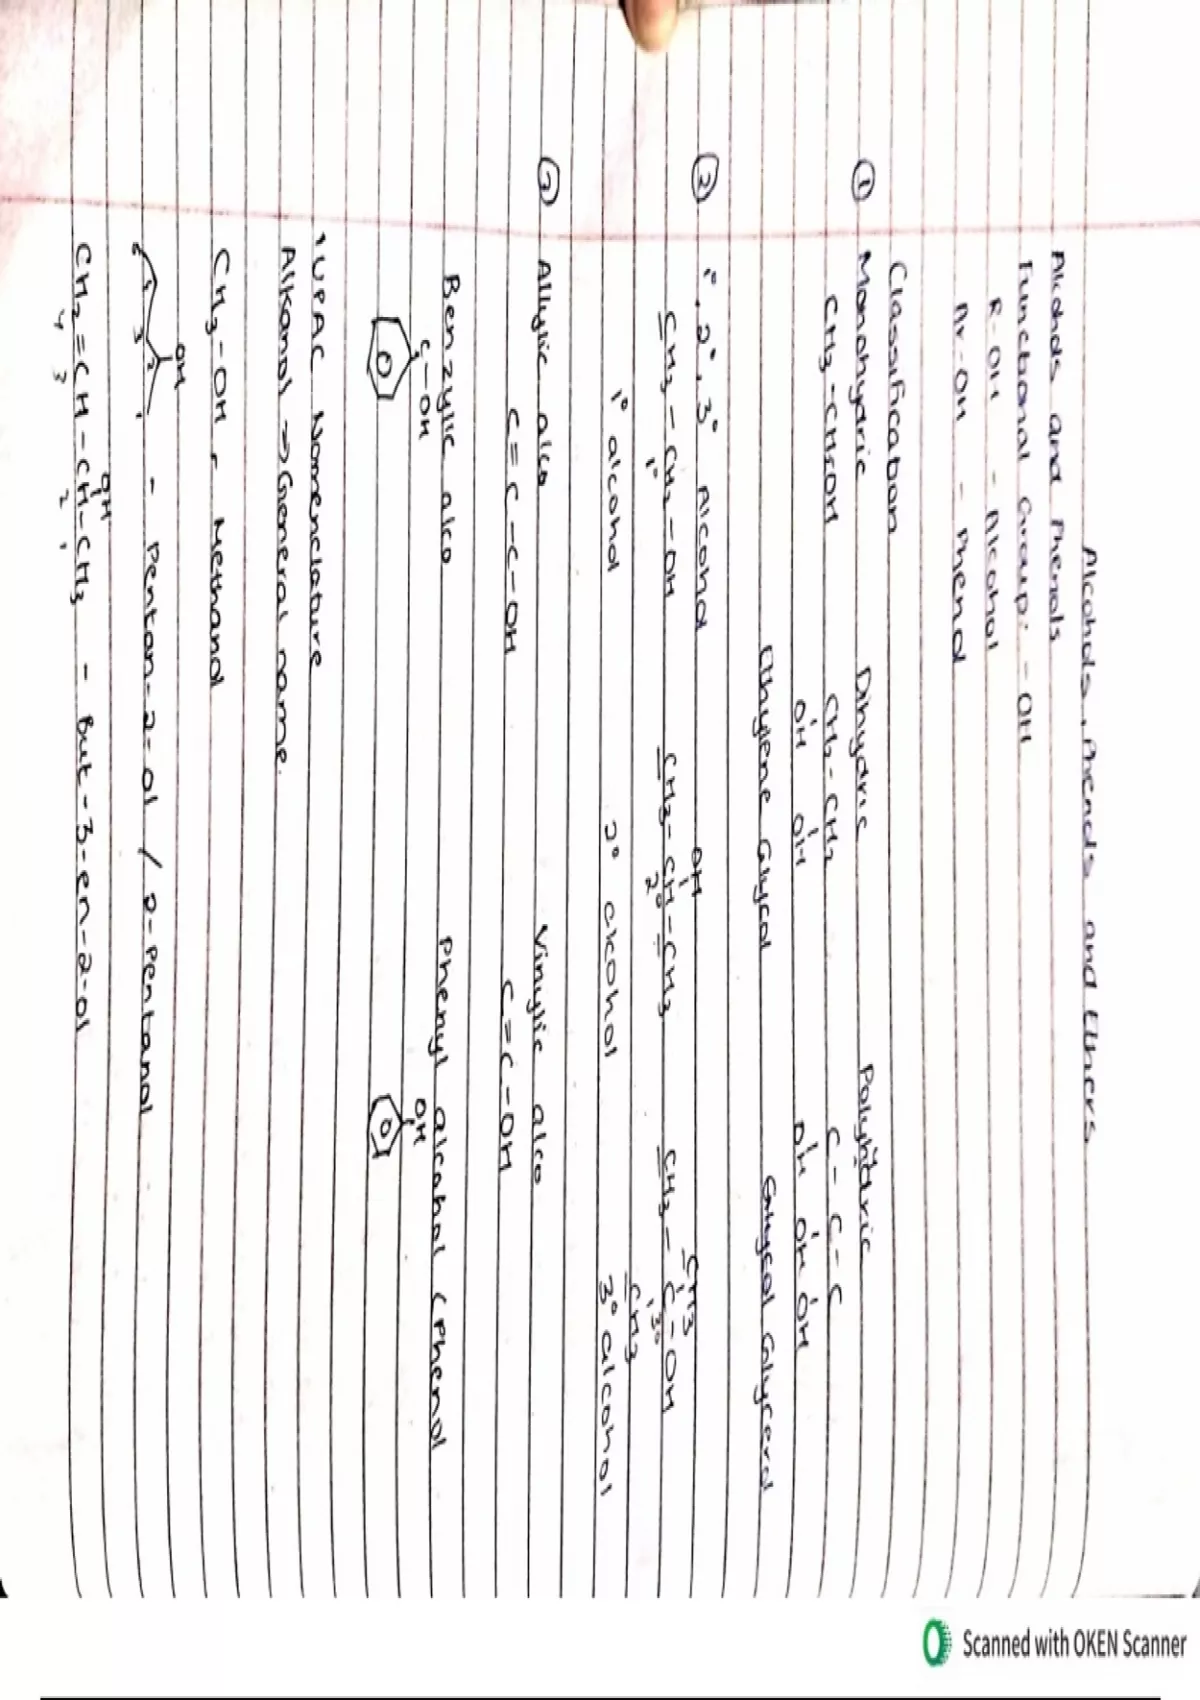 Alcohols, Phenols and Ethers
Alcohols and Phenols
Functional Group: - OH
R-OH - Alcohol
Ar-OH - Phenol
Classification
① Monohydric Dihydric Polyhydric
CH3-CH2OH CH2-CH2 C-C-C
OH OH OH OH OH
Ethylene Glycol Glycol Glycerol
② 1°, 2°, 3° Alcohol
OH CH3
CH3-CH2-OH CH3-CH-CH3 CH3-C-OH
1° 2° 3°
CH3
1° alcohol 2° alcohol 3° alcohol
③ Allylic alco Vinylic alco
C=C-C-OH C=C-OH
Benzylic alco Phenyl alcohol (Phenol
C-OH OH
IUPAC Nomenclature
Alkanol → General name.
CH3-OH - Methanol
OH
1 2 3 - Pentan-2-ol / 2-Pentanol
OH
CH2=CH-CH-CH3 - But-3-en-2-ol
4 3 2 1
Scanned with OKEN Scanner